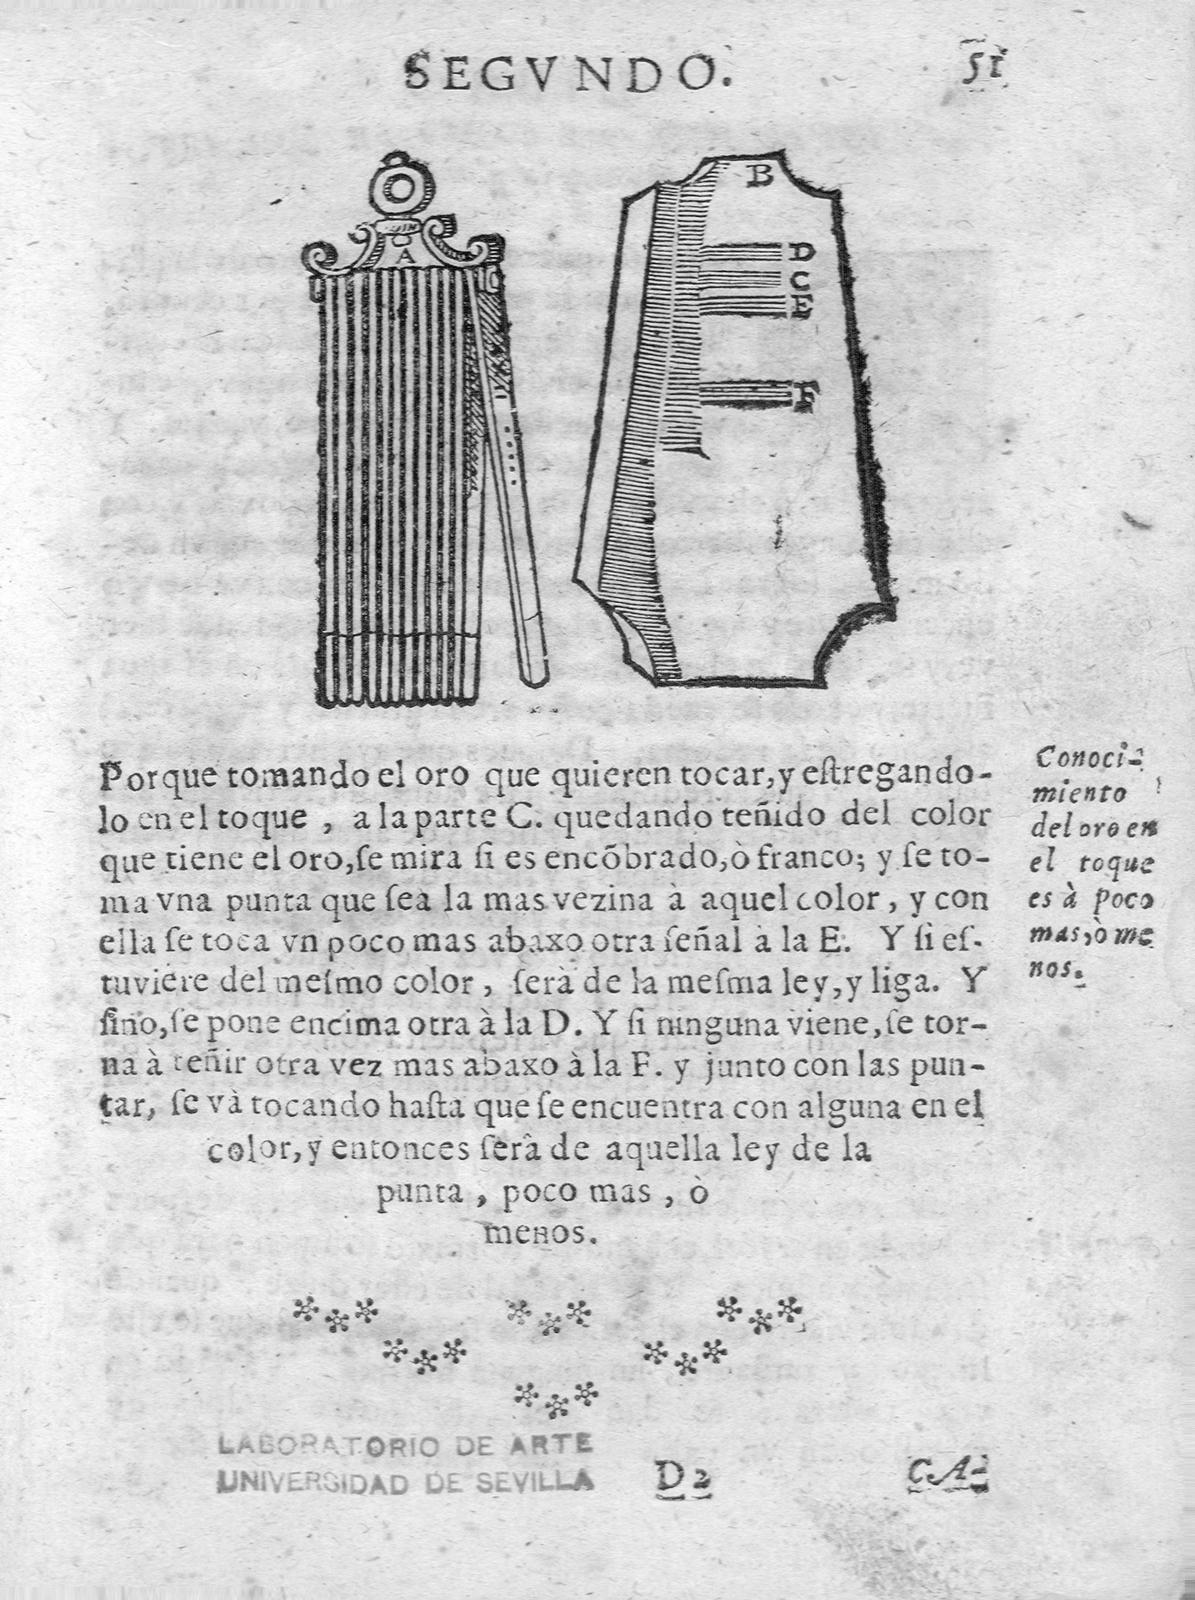 SEGVNDO.
51
A
B
D
C
E
F
Porque tomando el oro que quieren tocar, y eſtregando-
lo en el toque , a la parte C. quedando teñido del color
que tiene el oro, ſe mira ſi es encõbrado, ò franco; y ſe to-
ma vna punta que ſea la mas vezina à aquel color , y con
ella ſe toca vn poco mas abaxo otra ſeñal à la E. Y ſi eſ-
tuviere del meſmo color , ſerà de la meſma ley, y liga. Y
ſino, ſe pone encima otra à la D. Y ſi ninguna viene, ſe tor-
na à teñir otra vez mas abaxo à la F. y junto con las pun-
tar, ſe và tocando haſta que ſe encuentra con alguna en el
color, y entonces ſerâ de aquella ley de la
punta , poco mas , ò
menos.
Conoci-
miento
del oro en
el toque
es à poco
mas, ò me
nos.
LABORATORIO DE ARTE
UNIVERSIDAD DE SEVILLA
D 2
CA-